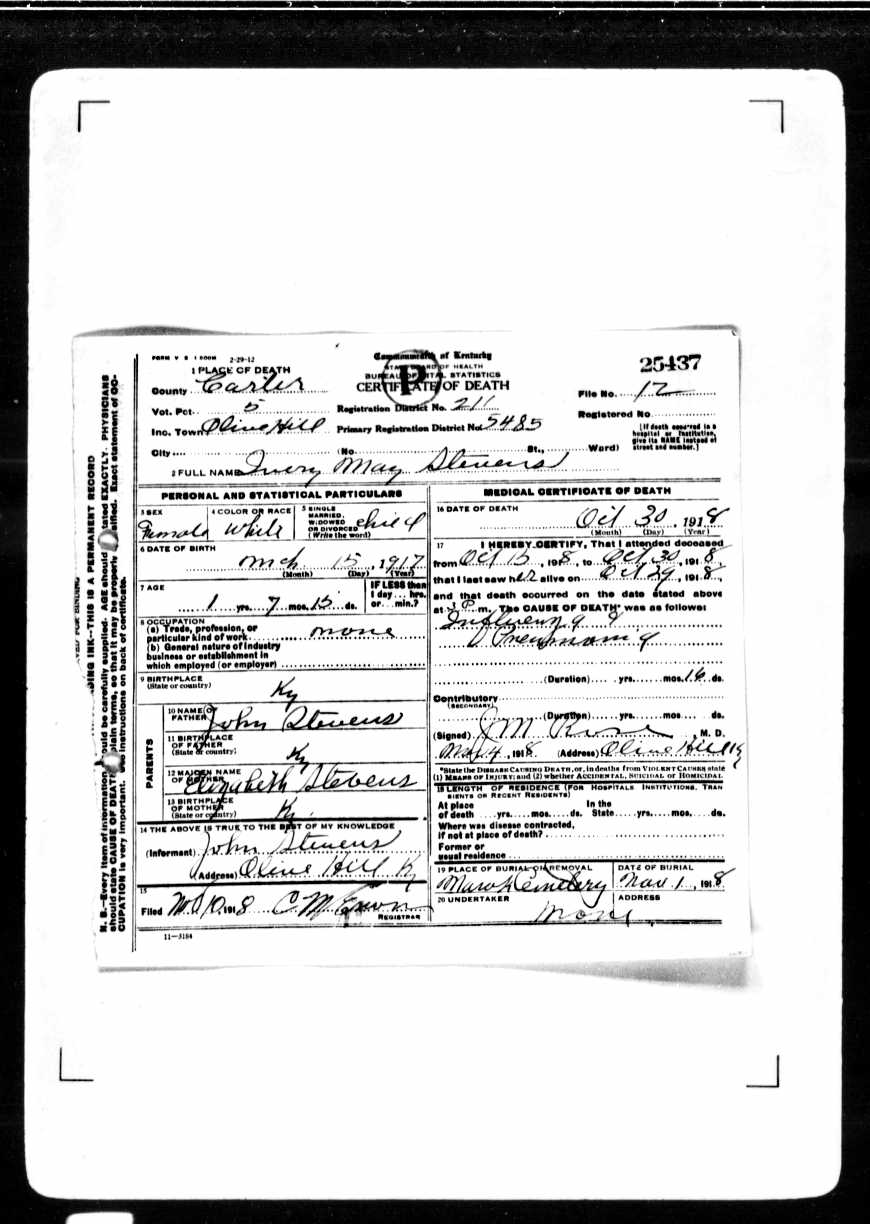 FORM V S 1 500M 2-29-12
Commonwealth of Kentucky
STATE BOARD OF HEALTH
BUREAU OF VITAL STATISTICS
CERTIFICATE OF DEATH
P
25437
1 PLACE OF DEATH
County Carter
Vot. Pct. 5
Inc. Town Olive Hill
City
Registration District No. 211
Primary Registration District No. 5485
(No. St., Ward)
File No. 12
Registered No.
[If death occurred in a hospital or institution, give its NAME instead of street and number.]
2 FULL NAME Ivery May Stevens
PERSONAL AND STATISTICAL PARTICULARS
3 SEX Female
4 COLOR OR RACE White
5 SINGLE MARRIED, WIDOWED OR DIVORCED (Write the word) Child
6 DATE OF BIRTH
Mch 15, 1917
(Month) (Day) (Year)
7 AGE
1 yrs. 7 mos. 15 ds.
IF LESS than 1 day ... hrs. or ... min.?
8 OCCUPATION
(a) Trade, profession, or particular kind of work none
(b) General nature of industry business or establishment in which employed (or employer)
9 BIRTHPLACE
(State or country) Ky
PARENTS
10 NAME OF FATHER John Stevens
11 BIRTHPLACE OF FATHER (State or country) Ky
12 MAIDEN NAME OF MOTHER Elizabeth Stevens
13 BIRTHPLACE OF MOTHER (State or country) Ky.
14 THE ABOVE IS TRUE TO THE BEST OF MY KNOWLEDGE
(Informant) John Stevens
(Address) Olive Hill Ky
15
Filed 10 1918 C M
REGISTRAR
11—3184
MEDICAL CERTIFICATE OF DEATH
16 DATE OF DEATH
Oct 30, 1918
(Month) (Day) (Year)
17 I HEREBY CERTIFY, That I attended deceased
from Oct 15, 1918, to Oct 30, 1918
that I last saw her alive on Oct 29, 1918,
and that death occurred on the date stated above
at 3 P m. The CAUSE OF DEATH* was as follows:
Influenza &
Pneumonia
(Duration) yrs. mos. 16 ds.
Contributory
(SECONDARY)
(Duration) yrs. mos. ds.
(Signed) J M Rose, M. D.
4, 1918 (Address) Olive Hill Ky
*State the DISEASE CAUSING DEATH, or, in deaths from VIOLENT CAUSES state
(1) MEANS OF INJURY; and (2) whether ACCIDENTAL, SUICIDAL or HOMICIDAL
18 LENGTH OF RESIDENCE (FOR HOSPITALS INSTITUTIONS, TRAN
SIENTS OR RECENT RESIDENTS)
At place of death yrs. mos. ds. In the State yrs. mos. ds.
Where was disease contracted, if not at place of death?
Former or usual residence
19 PLACE OF BURIAL OR REMOVAL
Cemetery
DATE OF BURIAL
Nov 1, 1918
20 UNDERTAKER
None
ADDRESS
DING INK--THIS IS A PERMANENT RECORD
N. B.—Every item of information should be carefully supplied. AGE should stated EXACTLY. PHYSICIANS
should state CAUSE OF DEATH plain terms, so that it may be properly sified. Exact statement of OC-
CUPATION is very important. See instructions on back of certificate.